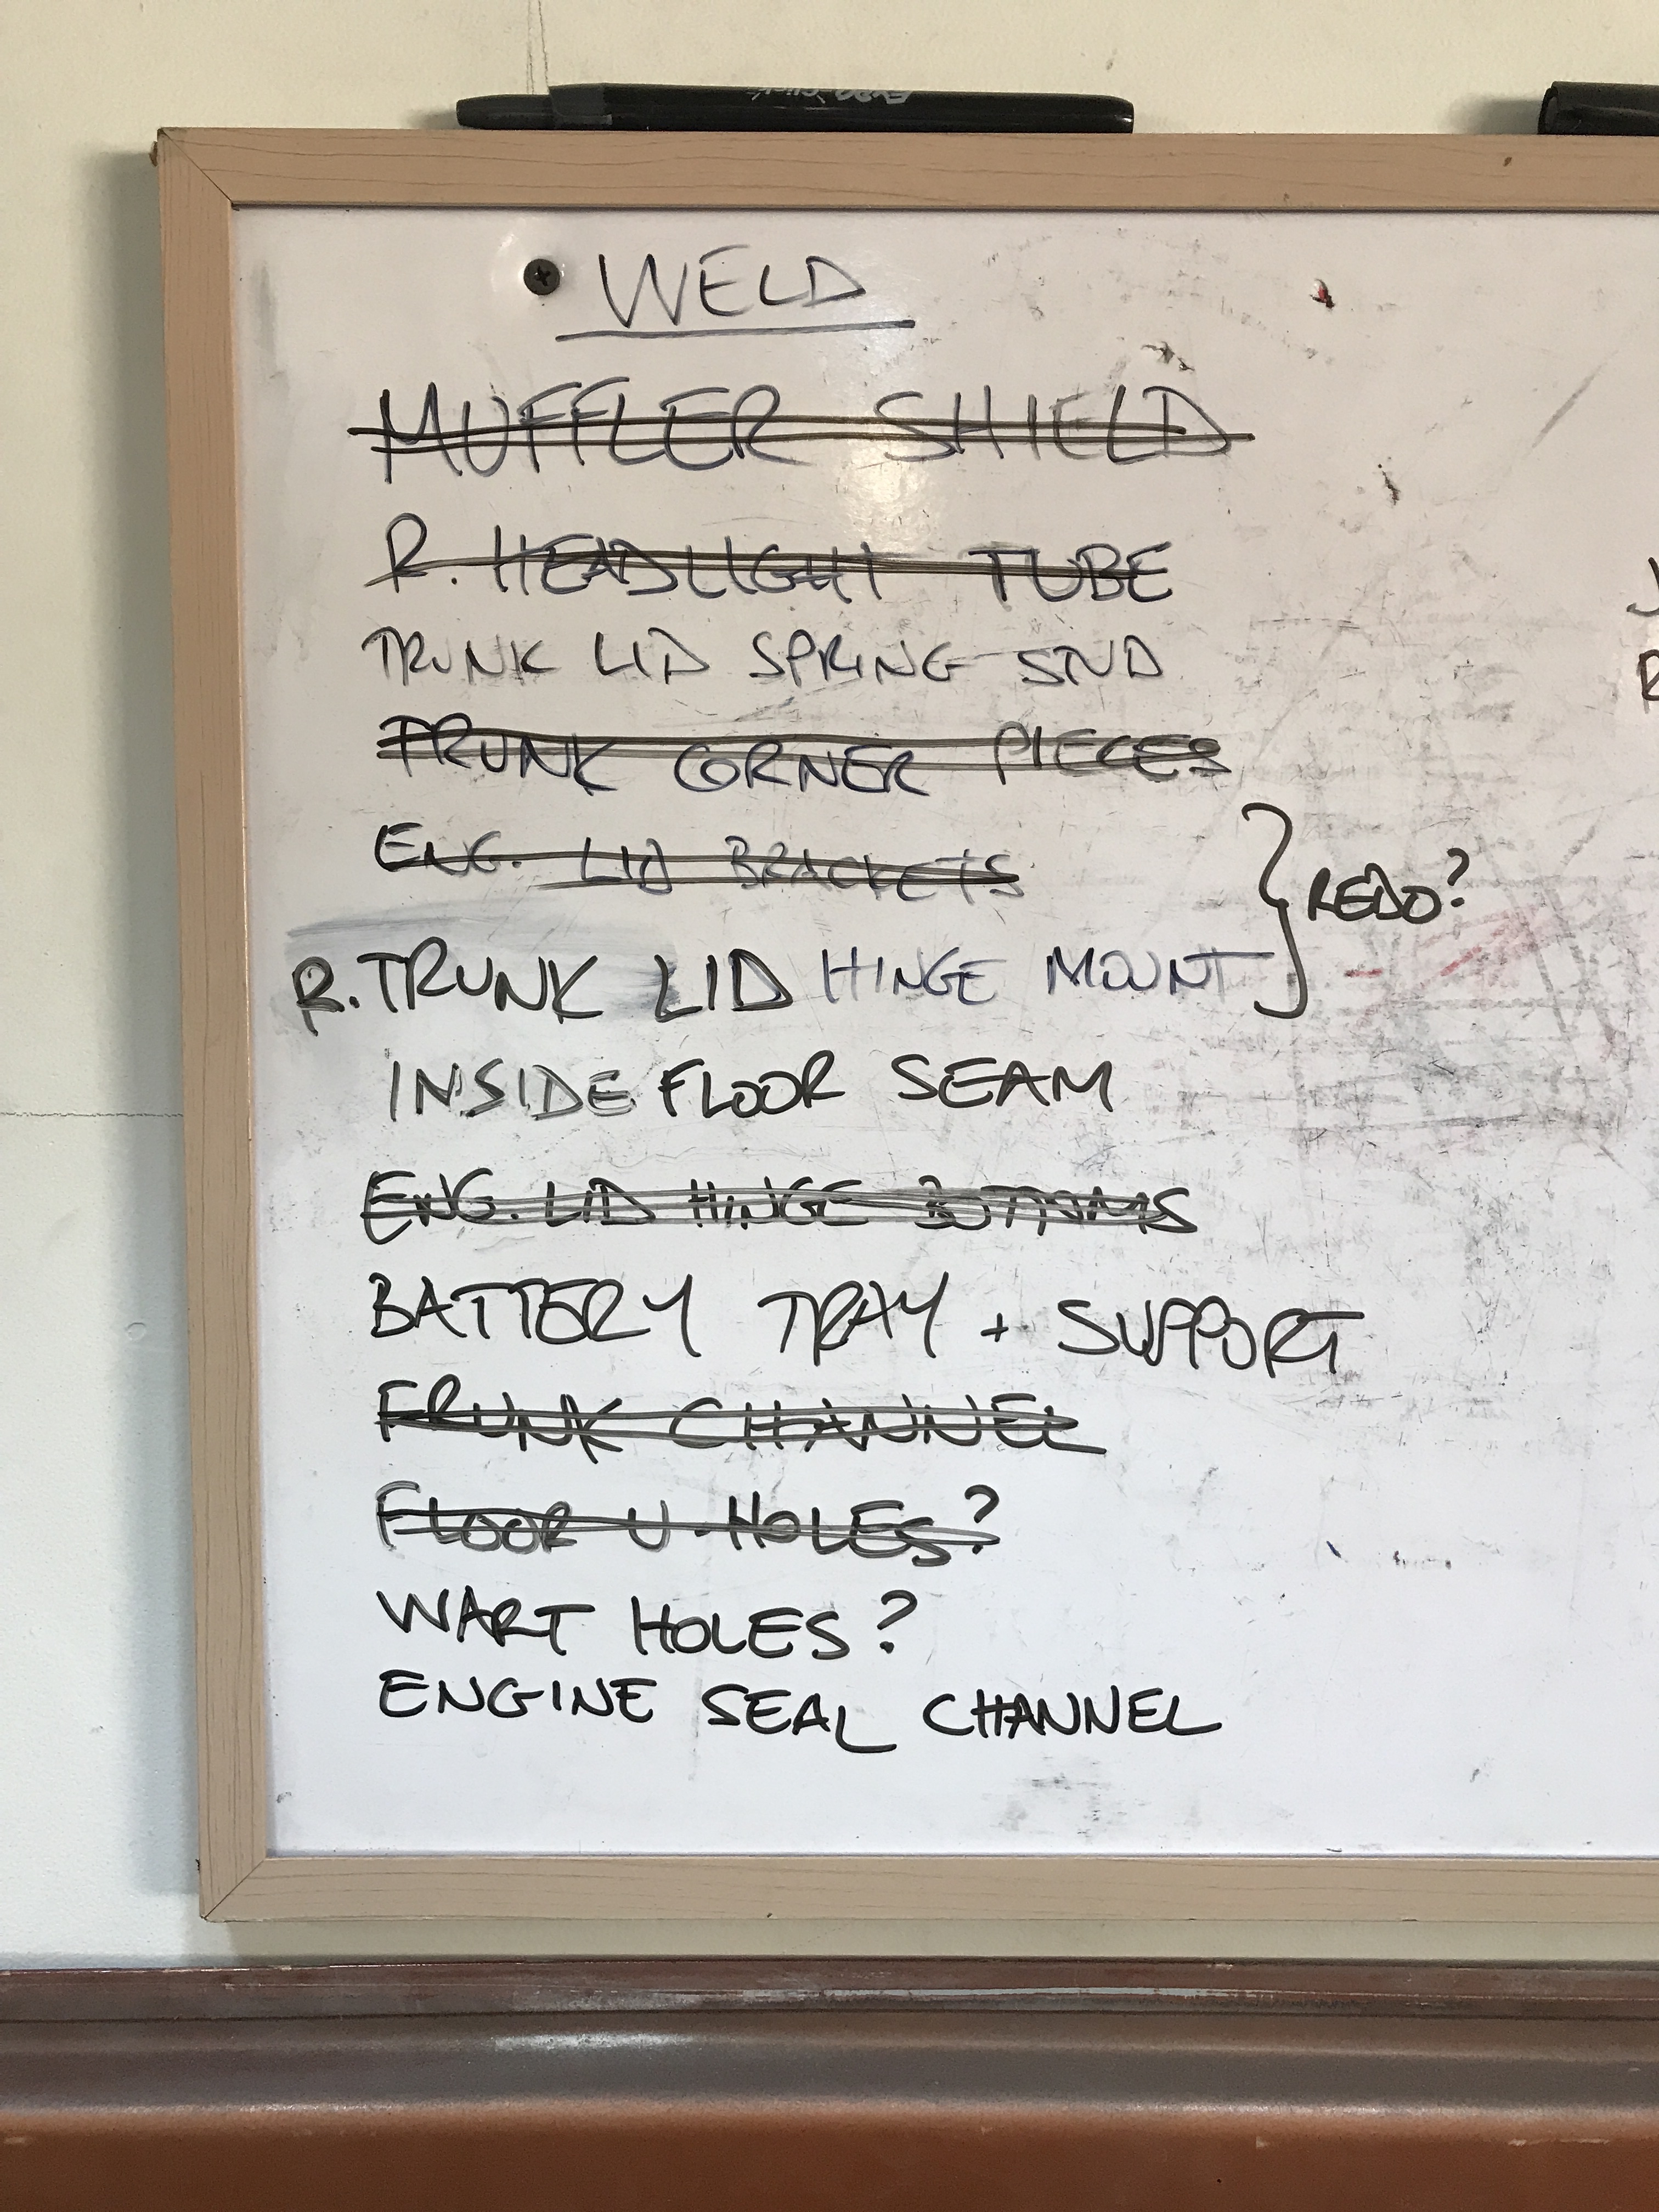 EXPO Click
WELD
MUFFLER SHIELD
R. HEADLIGHT TUBE
TRUNK LID SPRING STUD
TRUNK CORNER PIECES
ENG. LID BRACKETS
REDO?
R. TRUNK LID HINGE MOUNT
INSIDE FLOOR SEAM
ENG. LID HINGE BOTTOMS
BATTERY TRAY + SUPPORT
FRUNK CHANNEL
FLOOR U-HOLES?
WART HOLES?
ENGINE SEAL CHANNEL